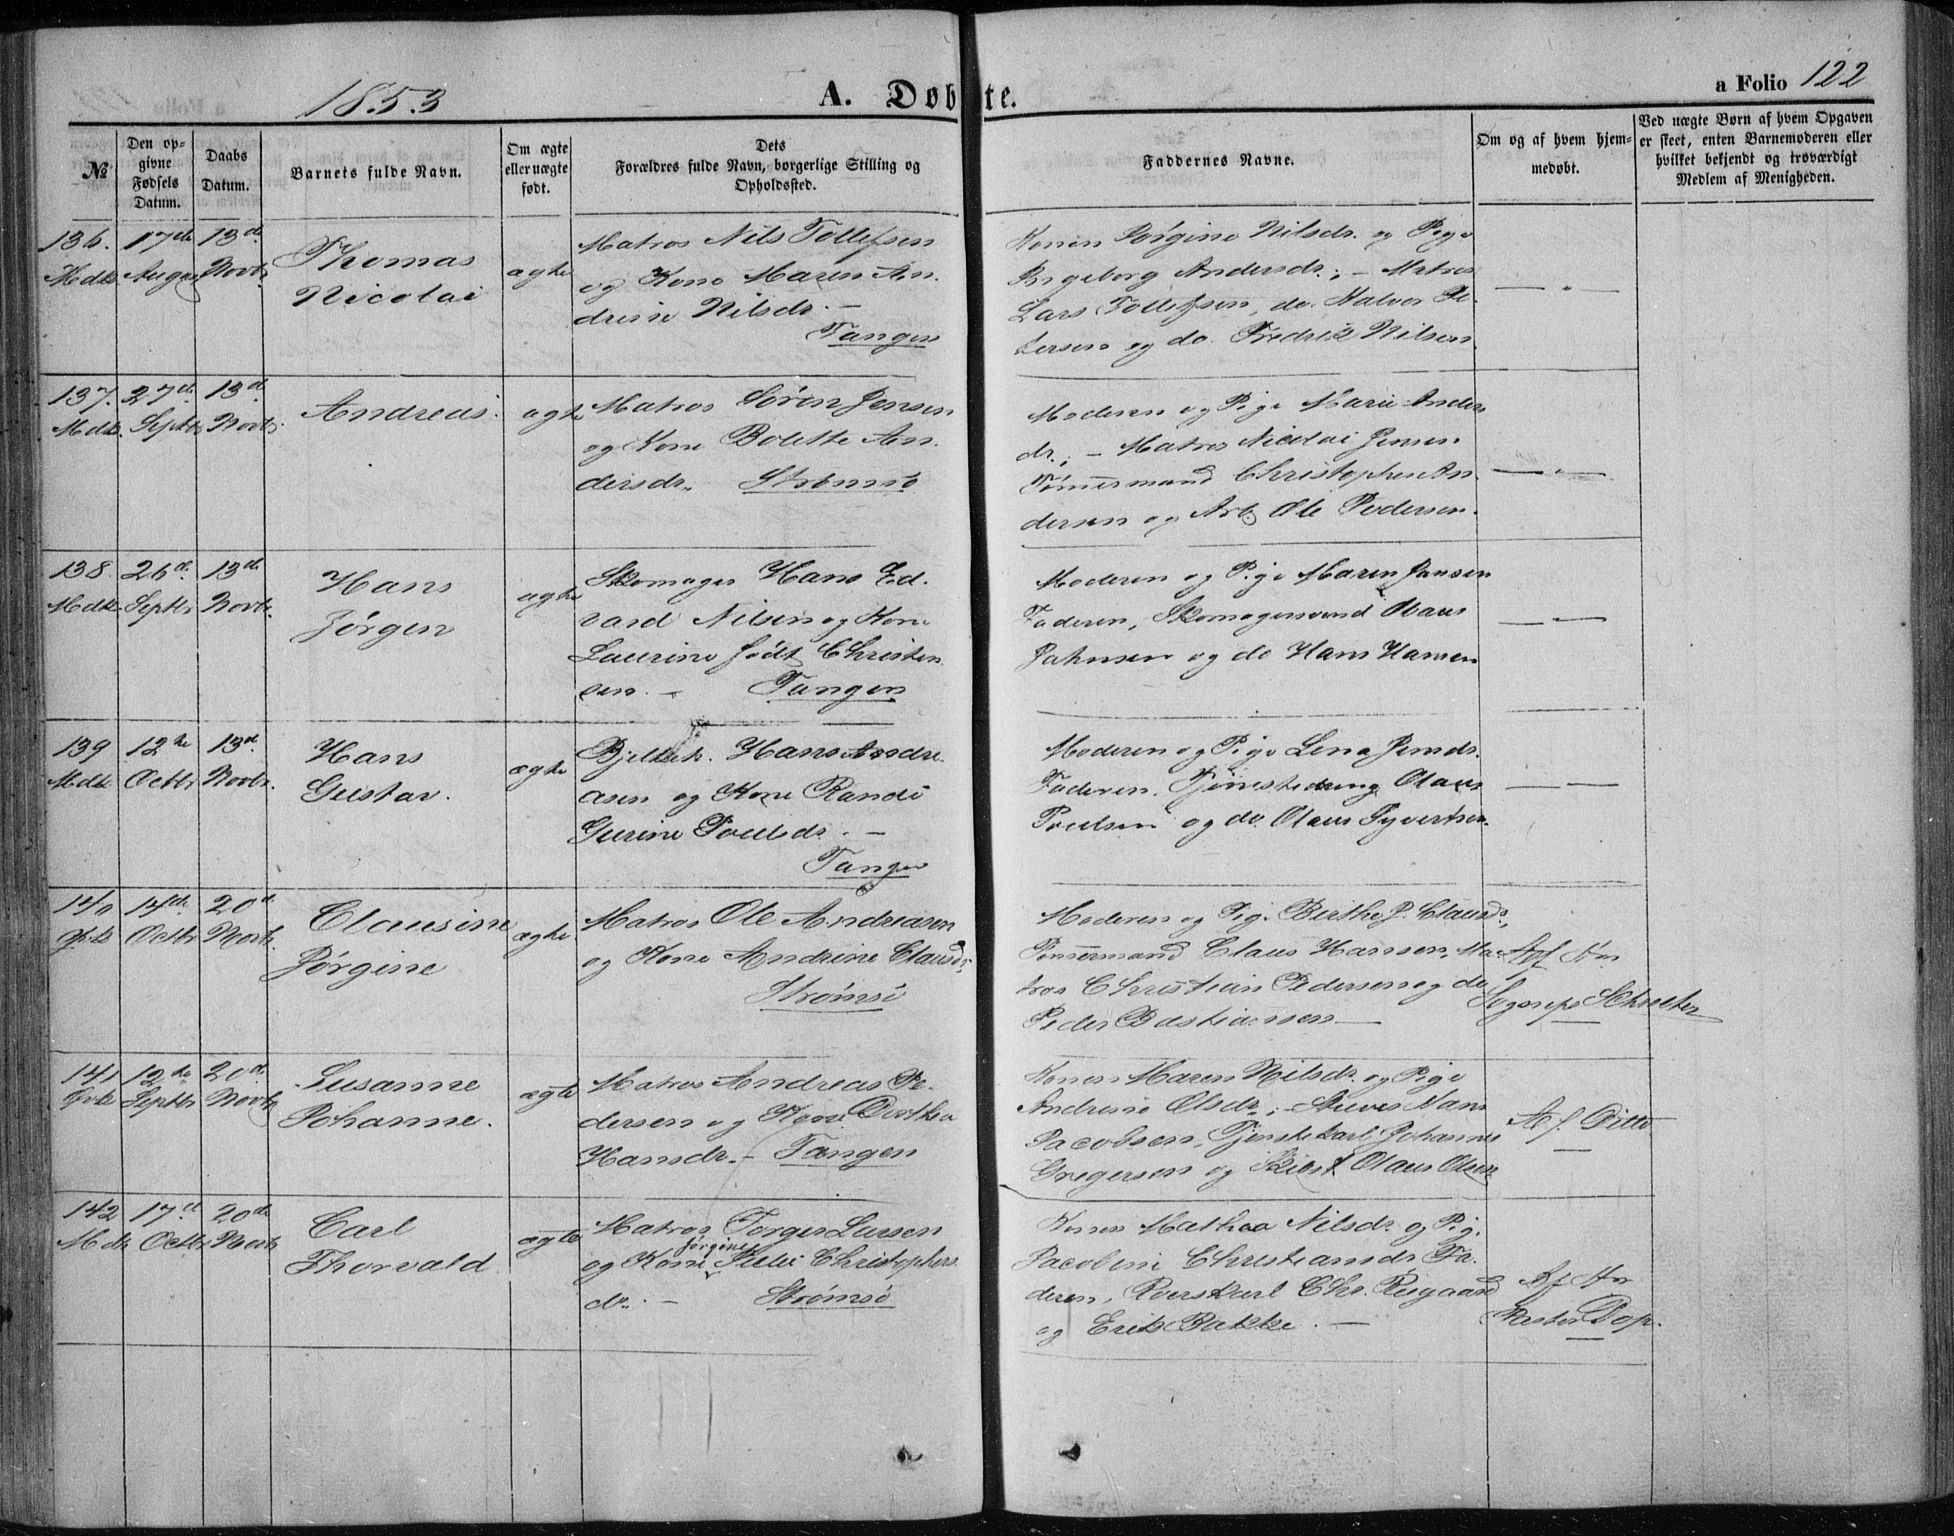 1853
A. Døbte.
a Folio 122
№
Den op-
givne
Fødsels
Datum.
Daabs
Datum.
Barnets fulde Navn.
Om ægte
eller uægte
født.
Dets
Forældres fulde Navn, borgerlige Stilling og
Opholdssted.
Faddernes Navne.
Om og af hvem hjem-
medøbt.
Ved uægte Børn af hvem Opgaven
er skeet, enten Barnemoderen eller
hvilket bekjendt og troværdigt
Medlem af Menigheden.
136.
Mdk.
17de
August
13d.
Novbr.
Thomas
Nicolai
ægte
Matros Nils Tollefsen
og Kone Maren An-
drine Nilsdr. —
Tangen
Konen Jørgine Nilsdr. og Pige
Ingeborg Andersdr.; — Matros
Lars Tollefsen, do. Halvor Pe-
tersen og do. Fredrik Nilsen.
— " —
137.
Mdk.
27de
Septbr
13d.
Novbr.
Andreas.
ægte
Matros Søren Jensen
og Kone Bolette An-
dersdr. Strømsö
Moderen og Pige Marie Anders
dr.; — Matros Nicolai Jensen
Tömmermand Christopher An-
dersen og Arb. Ole Pedersen.
— " —
138.
Mdk.
26d.
Septbr
13d.
Novbr.
Hans
Jørgen
ægte
Skomager Hans Ed-
vard Nilsen og Kone
Laurine født Christen
sen. — Tangen
Moderen og Pige Maren Jansen
Faderen, Skomagersvend Claus
Jahnsen og do Hans Hansen
— " —
139
Mdk
12te
Octbr
13d.
Novbr.
Hans
Gustav.
ægte
Hans Andre-
asen og Kone Randi
Gurine Poulsdr. —
Tangen
Moderen og Pige Lena Jensdr.
Faderen, Tjenestedreng Olaus
Poulsen og do. Olaus Syvertsen.
— " —
140
Pk
14de.
Octbr
20d
Novbr.
Clausine
Jørgine
ægte
Matros Ole Andreasen
og Kone Andrine Clausdr.
Strømsö
Moderen og Pige Berthe J. Clausdr.,
Tömmermand Claus Hansen, Ma-
tros Christian Pedersen og do
Peder Bastiansen —
Af Hr
Sognepr. Schroeter
—
141
Pk
12te
Septbr
20d.
Novbr
Susanne
Johanne.
ægte
Matros Andreas Pe-
dersen og Kone Dorthea
Hansdr. — Tangen
Konen Maren Nilsdr. og Pige
Andrine Olsdr.; — Hans
Jacobsen, Tjenestekarl Johannes
Gregersen og Olaus Olsen
Af. Ditto
—
142
Mdk
17d.
Octbr
20d
Novbr
Carl
Thorvald
ægte
Matros Torger Larsen
og Kone Jørgine Christophers
dr. — Strømsö
Konen Mathea Nilsdr. og Pige
Jacobine Christiansdr. Fa-
deren, Chr. Risgaard
og Erik Bakke. —
Af Hr
Pastor Dop.
—